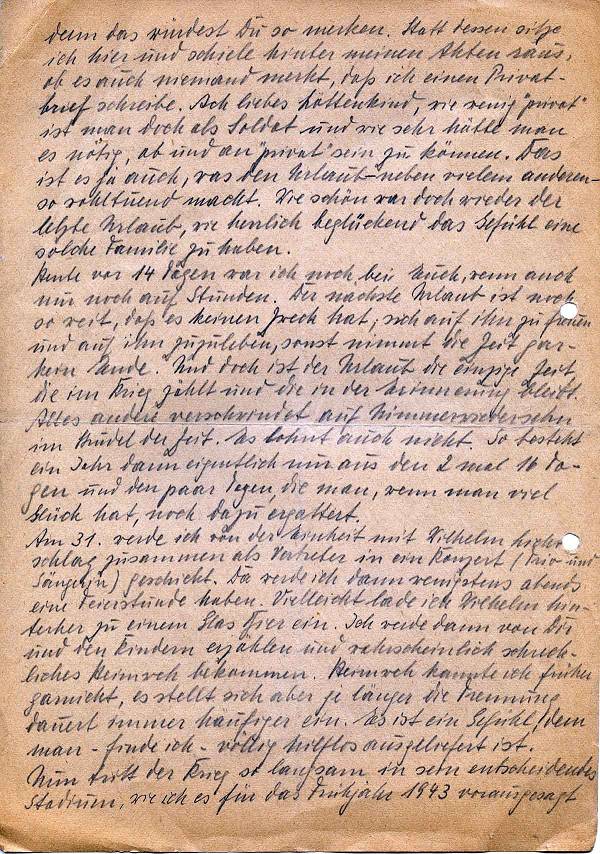 denn das würdest Du so merken. Statt dessen sitze
ich hier und schiele hinter meinen Akten raus,
ob es auch niemand merkt, daß ich einen Privat-
brief schreibe. Ach liebes, wie wenig "privat"
ist man doch als Soldat und wie sehr hätte man
es nötig, ab und an "privat" sein zu können. Das
ist es ja auch, was den Urlaub - neben vielem anderen -
so wohltuend macht. Wie schön war doch wieder der
letzte Urlaub, wie herrlich beglückend das Gefühl eine
solche Familie zu haben.
Heute vor 14 Tagen war ich noch bei Euch, wenn auch
nur noch auf Stunden. Der nächste Urlaub ist noch
so weit, daß es keinen Zweck hat, sich auf ihn zu freuen
und auf ihn zuzuleben, sonst nimmt die Zeit gar-
kein Ende. Und doch ist der Urlaub die einzige Zeit,
die im Krieg zählt und die in der Erinnerung bleibt.
Alles andere verschwindet auf Nimmerwiedersehn
im Strudel der Zeit. Es lohnt auch nicht. So besteht
ein Jahr dann eigentlich nur aus den 2 mal 16 Ta-
gen und den paar Tagen, die man, wenn man viel
Glück hat, noch dazu ergattert.
Am 31. werde ich von der Einheit mit Wilhelm
schlag zusammen als Vertreter in ein Konzert (Trio und
Sängerin) geschickt. Da werde ich dann wenigstens abends
eine Feierstunde haben. Vielleicht lade ich Wilhelm hin-
terher zu einem Glas Bier ein. Ich werde dann von Dir
und den Kindern erzählen und wahrscheinlich schreck-
liches Heimweh bekommen. Heimweh kannte ich früher
garnicht, es stellt sich aber je länger die Trennung
dauert immer häufiger ein. Es ist ein Gefühl, dem
man - finde ich - völlig hilflos ausgeliefert ist.
Nun tritt der Krieg so langsam in sein entscheidendes
Stadium, wie ich es für das Frühjahr 1943 vorausgesagt